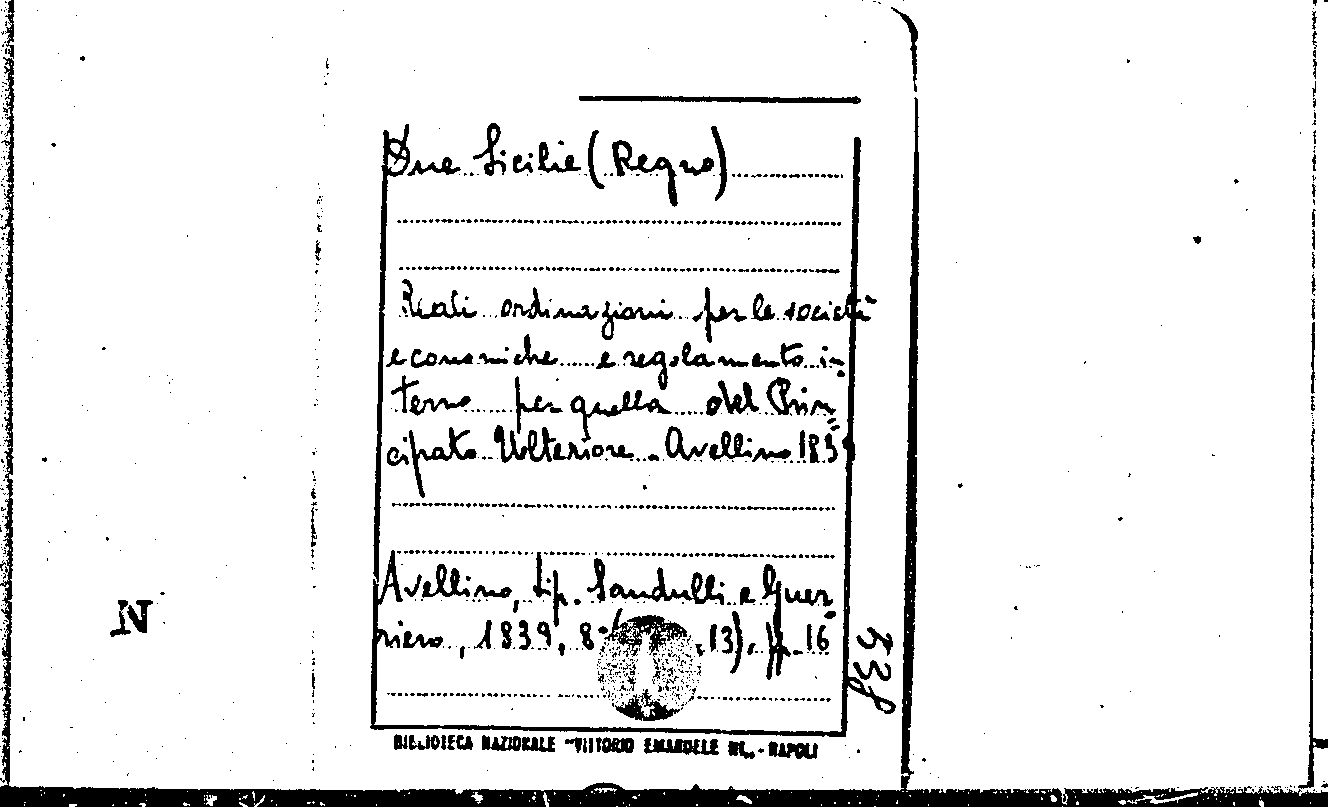 Due Sicilie (Regno)
Reali ordinazioni per le società
economiche e regolamento in=
terno per quella del Prin=
cipato Ulteriore. Avellino 1839
Avellino, tip. Sandulli e Guer=
riero, 1839, 8° ( 13), pp. 16
BIBLIOTECA NAZIONALE "VITTORIO EMANUELE III„ - NAPOLI
N